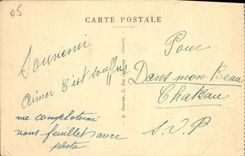 05
CARTE POSTALE
Souvenir
aimer c'est souffrir
me completerai
vous feuillet avec
photo
Pour
Dans mon Beau
Chateau
S.V.P